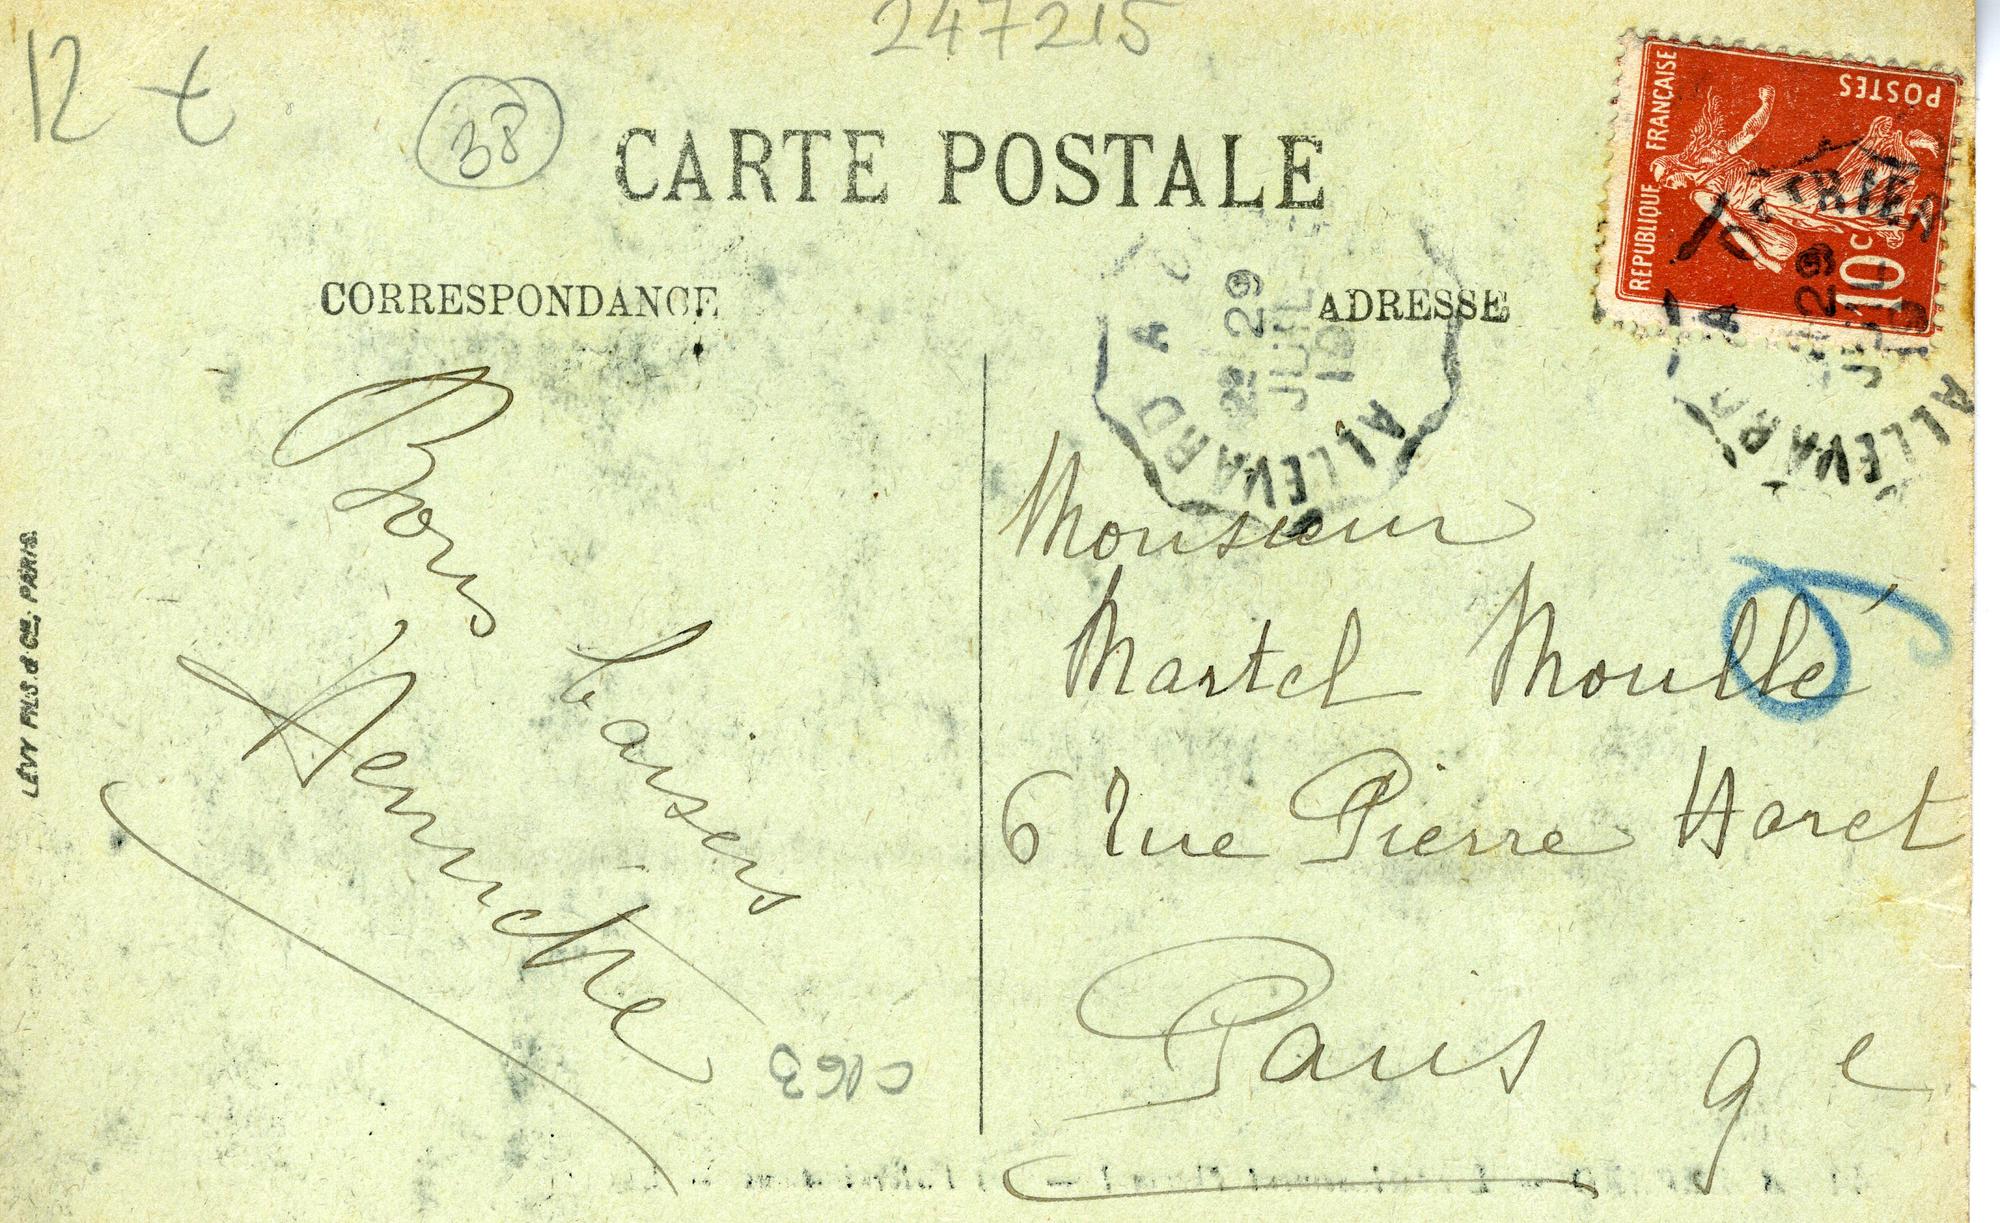 247215
12 €
38
CARTE POSTALE
REPUBLIQUE FRANÇAISE
POSTES
10c
CORRESPONDANCE
ADRESSE
ALLEVARD A
22 29
JUIL
19
ALLEVARD A
29
JUIL
19
Bons baisers
Henriette
Monsieur
Martel Moullé
6 rue Pierre Haret
Paris 9e
C163
LÉVY FILS & Cie, PARIS.